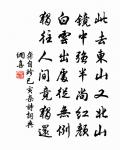 此去東山又北山
鏡中強半尚紅顏
白雲出處從無例
獨往人間竟獨還
自珍己亥杂詩詞典
網